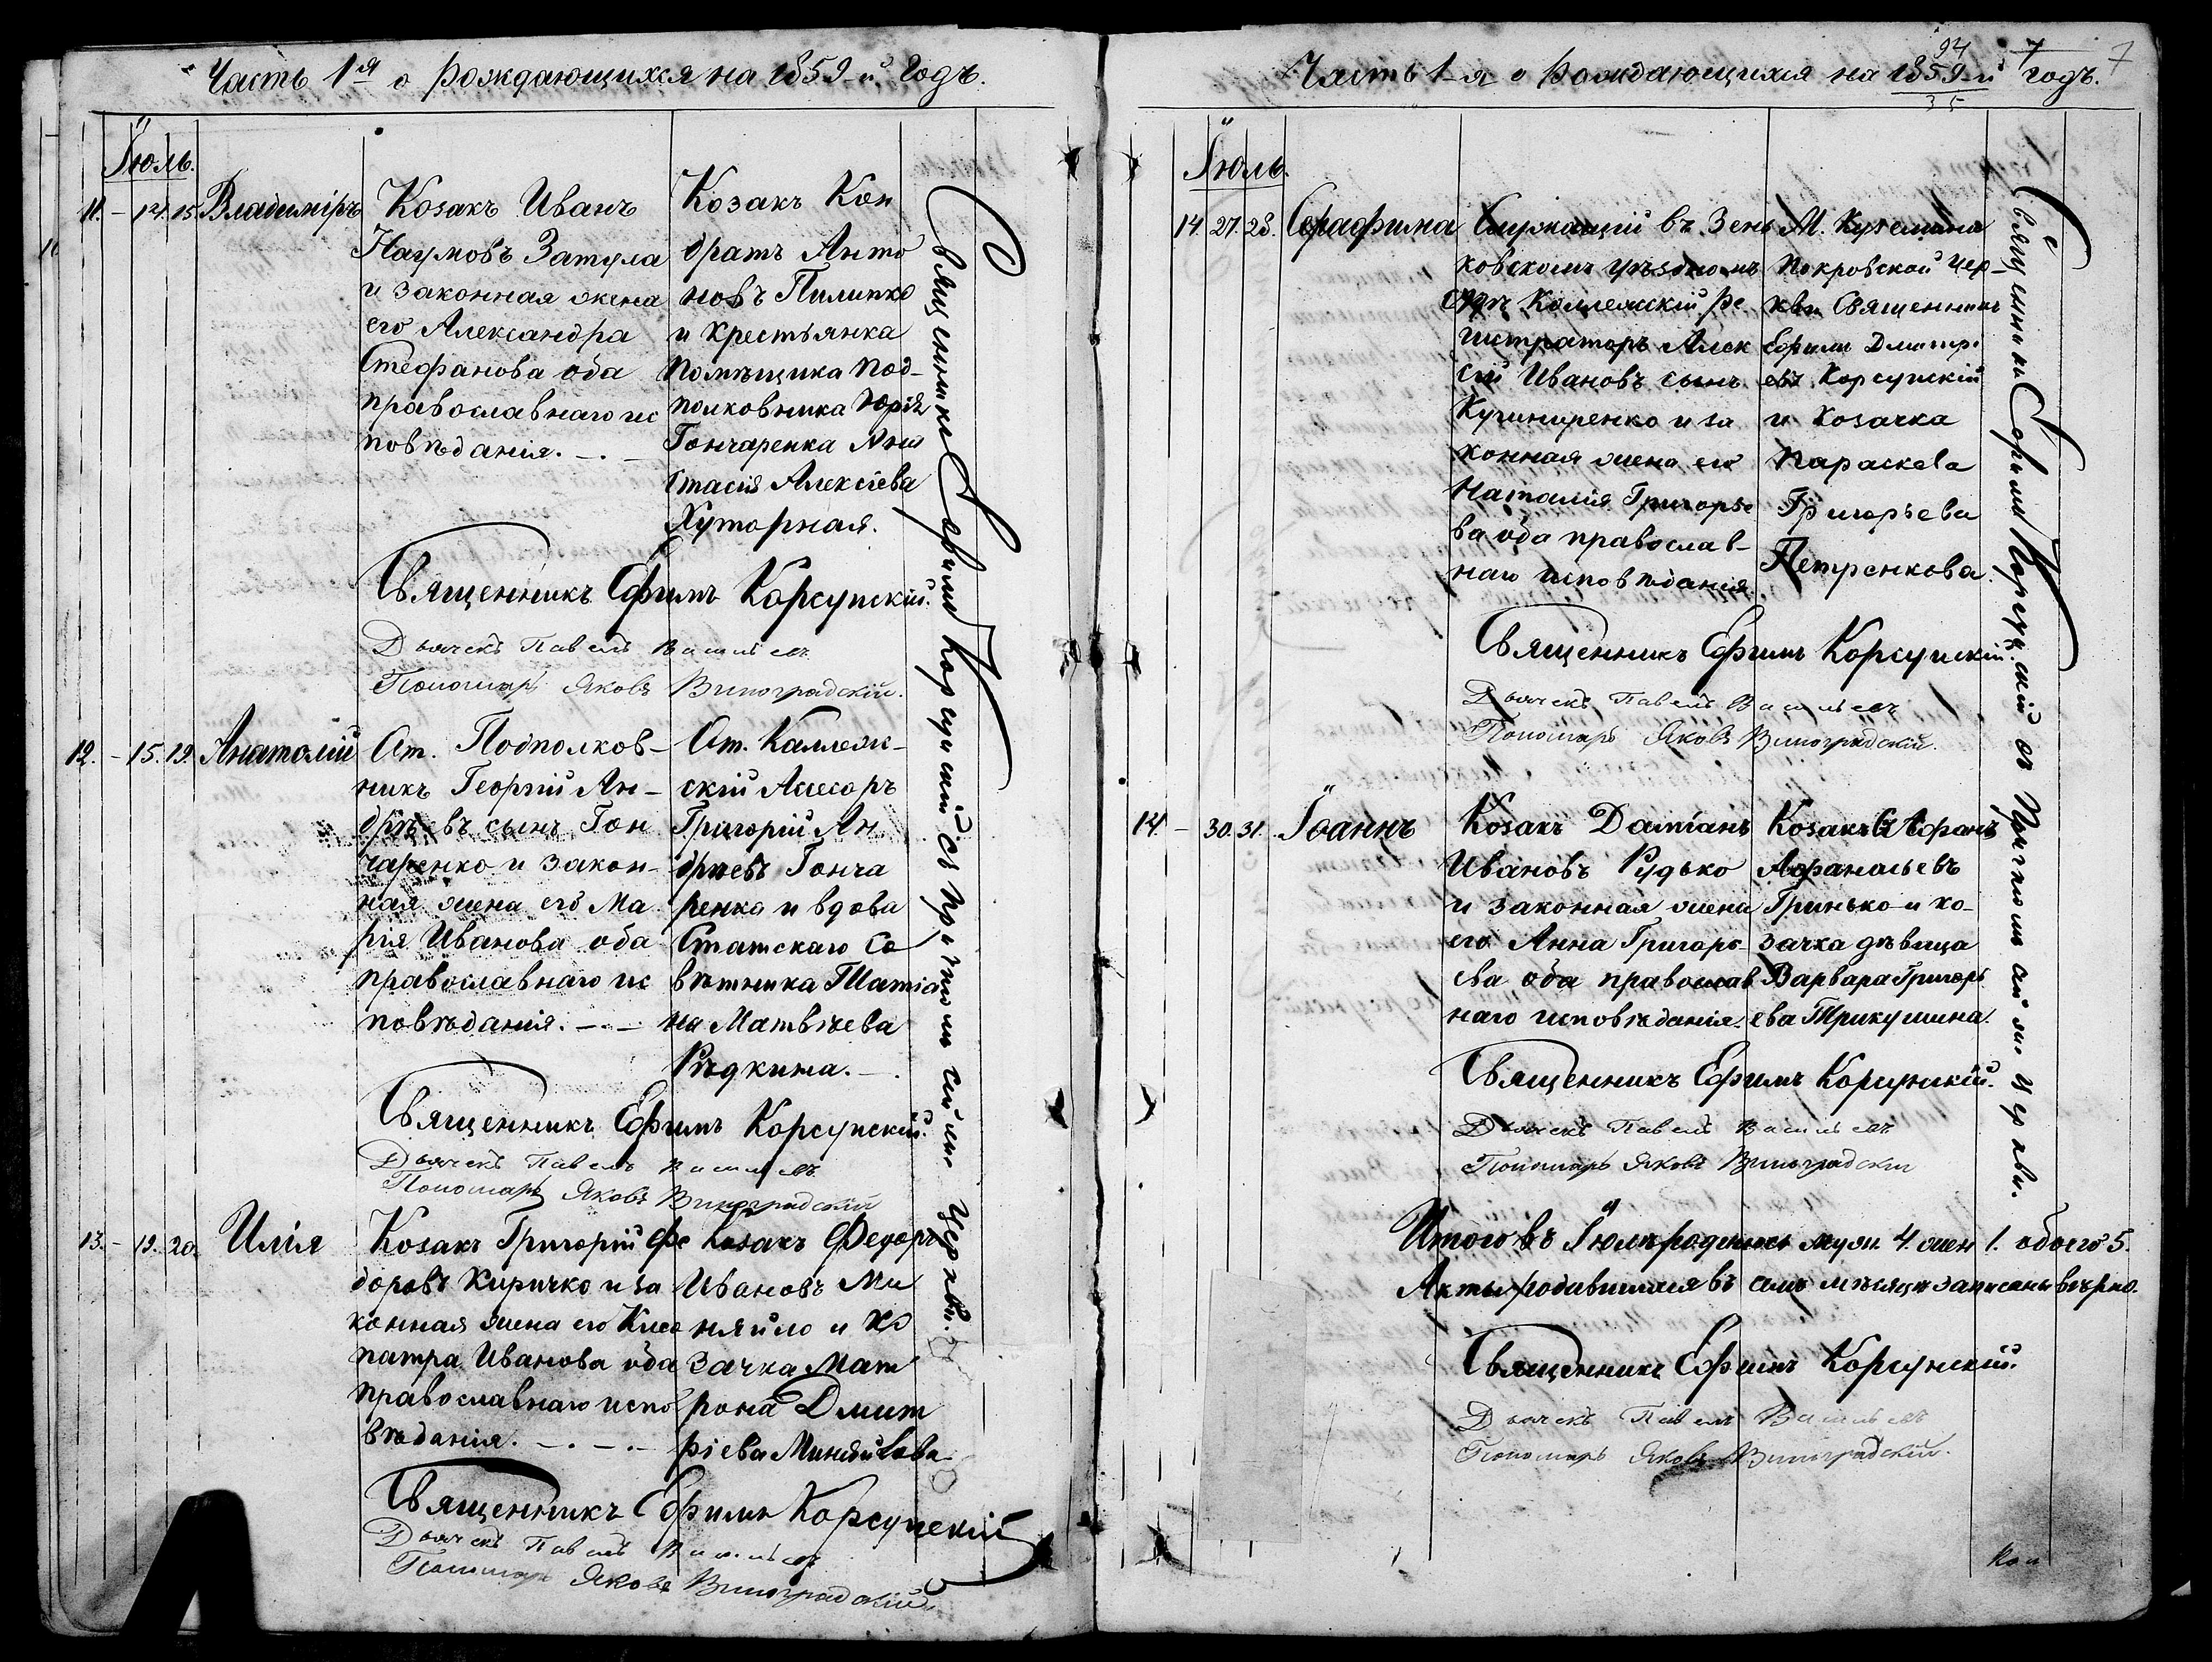 Часть 1я о рождающихся на 1859-й годъ.
Іюль.
11. - 14. 15. Владиміръ
Козакъ Иванъ
Наумовъ Затула
и законная жена
его Александра
Стефанова оба
православнаго ис
повѣданія.
Козакъ Кон
дратъ Анто
новъ Пилипко
и крестьянка
помѣщика под-
полковника Юрія
Гончаренка Ана
стасія Алексіева
Хуторная.
Священникъ Ефимъ Корсунскій.
Дьячекъ Павелъ
Пономарь Яковъ Виноградскій.
12. - 15. 19. Анатолій
От. Подполков-
никъ Георгій Ан-
дрѣевъ сынъ Гон
чаренко и закон-
ная жена его Ма
рія Иванова оба
православнаго ис
повѣданія.
От. Каллеж-
скій Ассесоръ
Григорій Ан
дрѣевъ Гонча
ренко и вдова
Статскаго Со
вѣтника Татія
на Матвѣева
Рѣдкина.
Священникъ Ефимъ Корсунскій.
Дьячекъ Павелъ
Пономарь Яковъ Виноградскій
13. - 19. 20. Илія
Козакъ Григорій Фе
доровъ Киричко и за
конная жена его Клео
патра Иванова оба
православнаго испо
вѣданія.
Козакъ Федоръ
Ивановъ Ми
няйло и ко
зачка Мат
рона Дмит
ріева Миняйлова
Священникъ Ефимъ Корсунскій
Дьячекъ Павелъ
Пономарь Яковъ Виноградскій
Священникъ Ефимъ Корсунскій съ причтомъ сей же церкви.
Часть 1-я о рождающихся на 1859-й годъ.
94
35
7
7
Іюль.
14. 27. 28. Серафима
Служащій въ Зень
ковскомъ уѣздномъ
судѣ Коллежскій Ре
гистраторъ Алек
сій Ивановъ сынъ
и за
конная жена его
Наталія Григорье
ва оба православ-
наго исповѣданія
М.
Покровской Цер-
кви Священникъ
Ефимъ Дмитрі
евъ Корсунскій
и козачка
Параскева
Григорьева
Петренкова.
Священникъ Ефимъ Корсунскій.
Дьячекъ Павелъ
Пономарь Яковъ Виноградскій.
14. - 30. 31. Іоаннъ
Козакъ Даміанъ
Ивановъ Рудько
и законная жена
его Анна Григорь
ева оба православ
наго исповѣданія.
Козакъ
Афанасьевъ
Гринько и ко-
зачка дѣвица
Варвара Григорь
ева Трикушина.
Священникъ Ефимъ Корсунскій.
Дьячекъ Павелъ
Пономарь Яковъ Виноградскій
Итого въ Іюлѣ родилось муж. 4. жен 1. обоего 5.
Акты родившихся въ семъ мѣсяцѣ записаны вѣрно.
Священникъ Ефимъ Корсунскій.
Дьячекъ Павелъ
Пономарь Яковъ Виноградскій.
Священникъ Ефимъ Корсунскій съ Причтомъ сей же церкви.